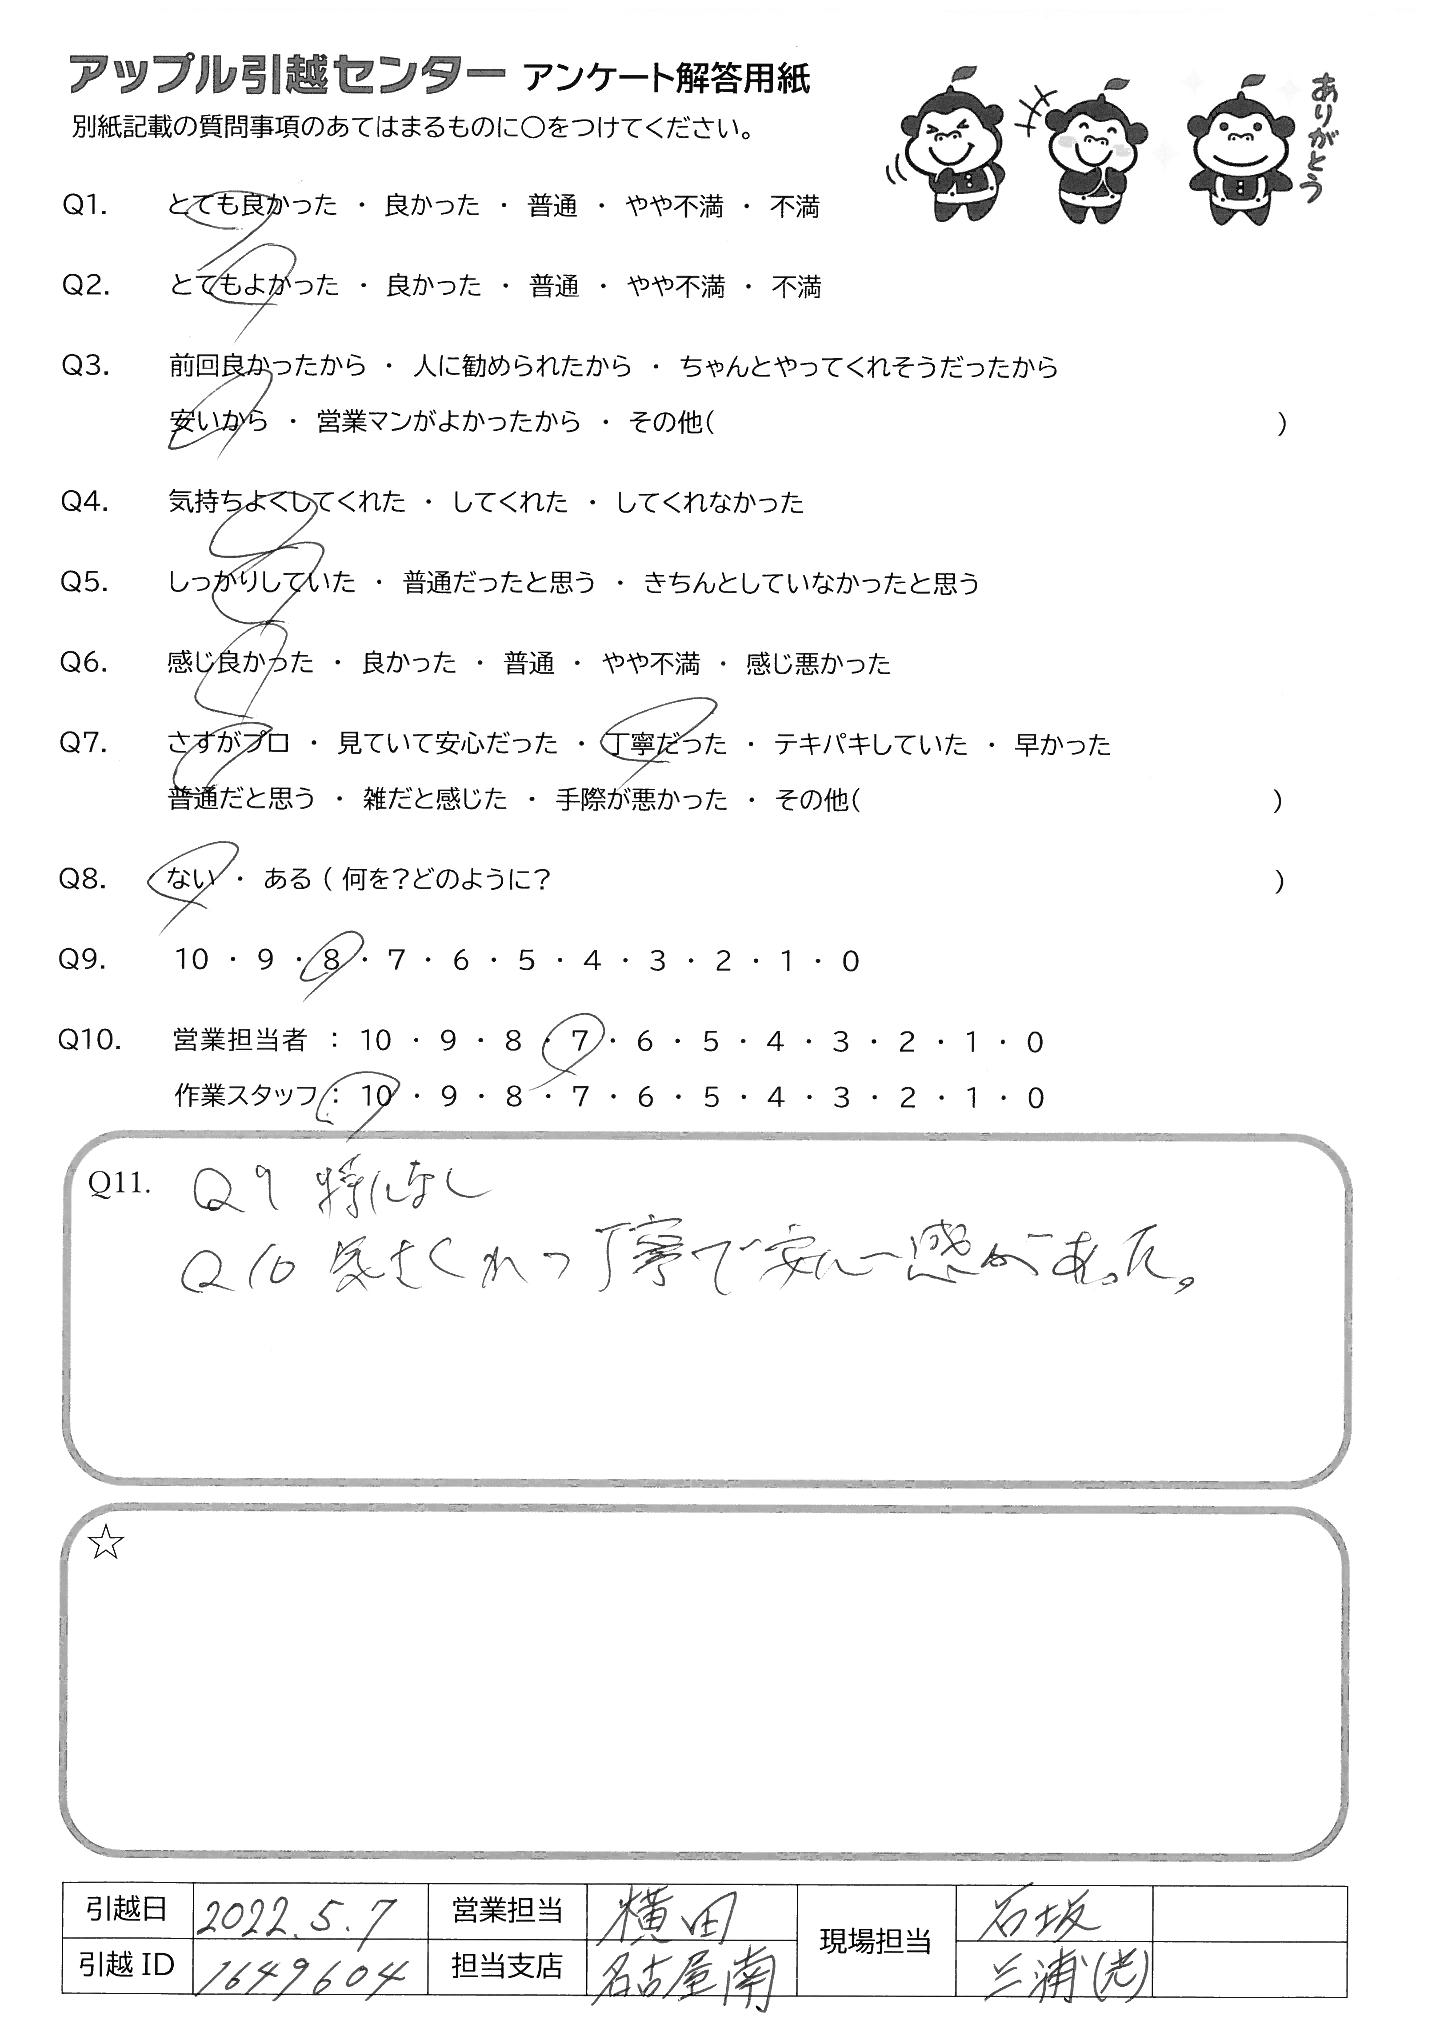 アップル引越センター アンケート解答用紙
別紙記載の質問事項のあてはまるものに〇をつけてください。
ありがとう
Q1. とても良かった ・ 良かった ・ 普通 ・ やや不満 ・ 不満
Q2. とてもよかった ・ 良かった ・ 普通 ・ やや不満 ・ 不満
Q3. 前回良かったから ・ 人に勧められたから ・ ちゃんとやってくれそうだったから
安いから ・ 営業マンがよかったから ・ その他( )
Q4. 気持ちよくしてくれた ・ してくれた ・ してくれなかった
Q5. しっかりしていた ・ 普通だったと思う ・ きちんとしていなかったと思う
Q6. 感じ良かった ・ 良かった ・ 普通 ・ やや不満 ・ 感じ悪かった
Q7. さすがプロ ・ 見ていて安心だった ・ 丁寧だった ・ テキパキしていた ・ 早かった
普通だと思う ・ 雑だと感じた ・ 手際が悪かった ・ その他( )
Q8. ない ・ ある ( 何を?どのように? )
Q9. 10 ・ 9 ・ 8 ・ 7 ・ 6 ・ 5 ・ 4 ・ 3 ・ 2 ・ 1 ・ 0
Q10. 営業担当者 : 10 ・ 9 ・ 8 ・ 7 ・ 6 ・ 5 ・ 4 ・ 3 ・ 2 ・ 1 ・ 0
作業スタッフ : 10 ・ 9 ・ 8 ・ 7 ・ 6 ・ 5 ・ 4 ・ 3 ・ 2 ・ 1 ・ 0
Q11. Q9 特になし
Q10 気さくかつ丁寧で安心感があった。
☆
引越日 2022.5.7 営業担当 横田 現場担当 石坂
引越ID 1649604 担当支店 名古屋南 三浦(光)